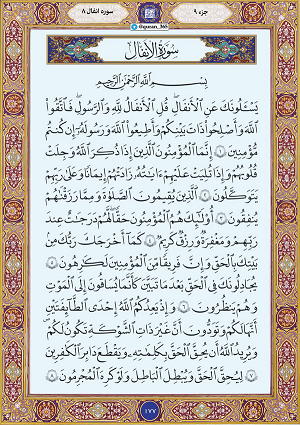 جزء ۹
@quran_365
سوره انفال ۸
سُورَةُ الأَنفَالِ
بِسْمِ اللَّهِ الرَّحْمَٰنِ الرَّحِيمِ
يَسْـَٔلُونَكَ عَنِ الْأَنفَالِ ۖ قُلِ الْأَنفَالُ لِلَّهِ وَالرَّسُولِ ۖ فَاتَّقُوا
اللَّهَ وَأَصْلِحُوا ذَاتَ بَيْنِكُمْ ۖ وَأَطِيعُوا اللَّهَ وَرَسُولَهُ إِن كُنتُم
مُّؤْمِنِينَ ۝١ إِنَّمَا الْمُؤْمِنُونَ الَّذِينَ إِذَا ذُكِرَ اللَّهُ وَجِلَتْ
قُلُوبُهُمْ وَإِذَا تُلِيَتْ عَلَيْهِمْ ءَايَٰتُهُ زَادَتْهُمْ إِيمَٰنًا وَعَلَىٰ رَبِّهِمْ
يَتَوَكَّلُونَ ۝٢ الَّذِينَ يُقِيمُونَ الصَّلَوٰةَ وَمِمَّا رَزَقْنَٰهُمْ
يُنفِقُونَ ۝٣ أُولَٰئِكَ هُمُ الْمُؤْمِنُونَ حَقًّا ۚ لَّهُمْ دَرَجَٰتٌ عِندَ
رَبِّهِمْ وَمَغْفِرَةٌ وَرِزْقٌ كَرِيمٌ ۝٤ كَمَا أَخْرَجَكَ رَبُّكَ مِن
بَيْتِكَ بِالْحَقِّ وَإِنَّ فَرِيقًا مِّنَ الْمُؤْمِنِينَ لَكَٰرِهُونَ ۝٥
يُجَٰدِلُونَكَ فِي الْحَقِّ بَعْدَ مَا تَبَيَّنَ كَأَنَّمَا يُسَاقُونَ إِلَى الْمَوْتِ
وَهُمْ يَنظُرُونَ ۝٦ وَإِذْ يَعِدُكُمُ اللَّهُ إِحْدَى الطَّائِفَتَيْنِ
أَنَّهَا لَكُمْ وَتَوَدُّونَ أَنَّ غَيْرَ ذَاتِ الشَّوْكَةِ تَكُونُ لَكُمْ
وَيُرِيدُ اللَّهُ أَن يُحِقَّ الْحَقَّ بِكَلِمَٰتِهِ وَيَقْطَعَ دَابِرَ الْكَٰفِرِينَ
۝٧ لِيُحِقَّ الْحَقَّ وَيُبْطِلَ الْبَٰطِلَ وَلَوْ كَرِهَ الْمُجْرِمُونَ ۝٨
۱۷۷